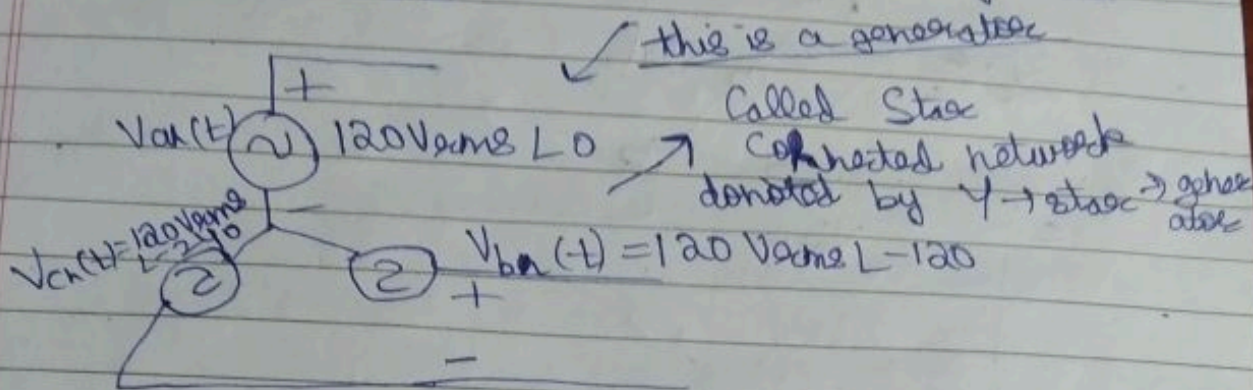 this is a generator
Called Star
Connected network
denoted by Y → star → gener
ator
+
Van(t) 120 Vrms ∠0
−
Vcn(t) = 120 Vrms
∠-240
Vbn(t) = 120 Vrms ∠-120
+
−